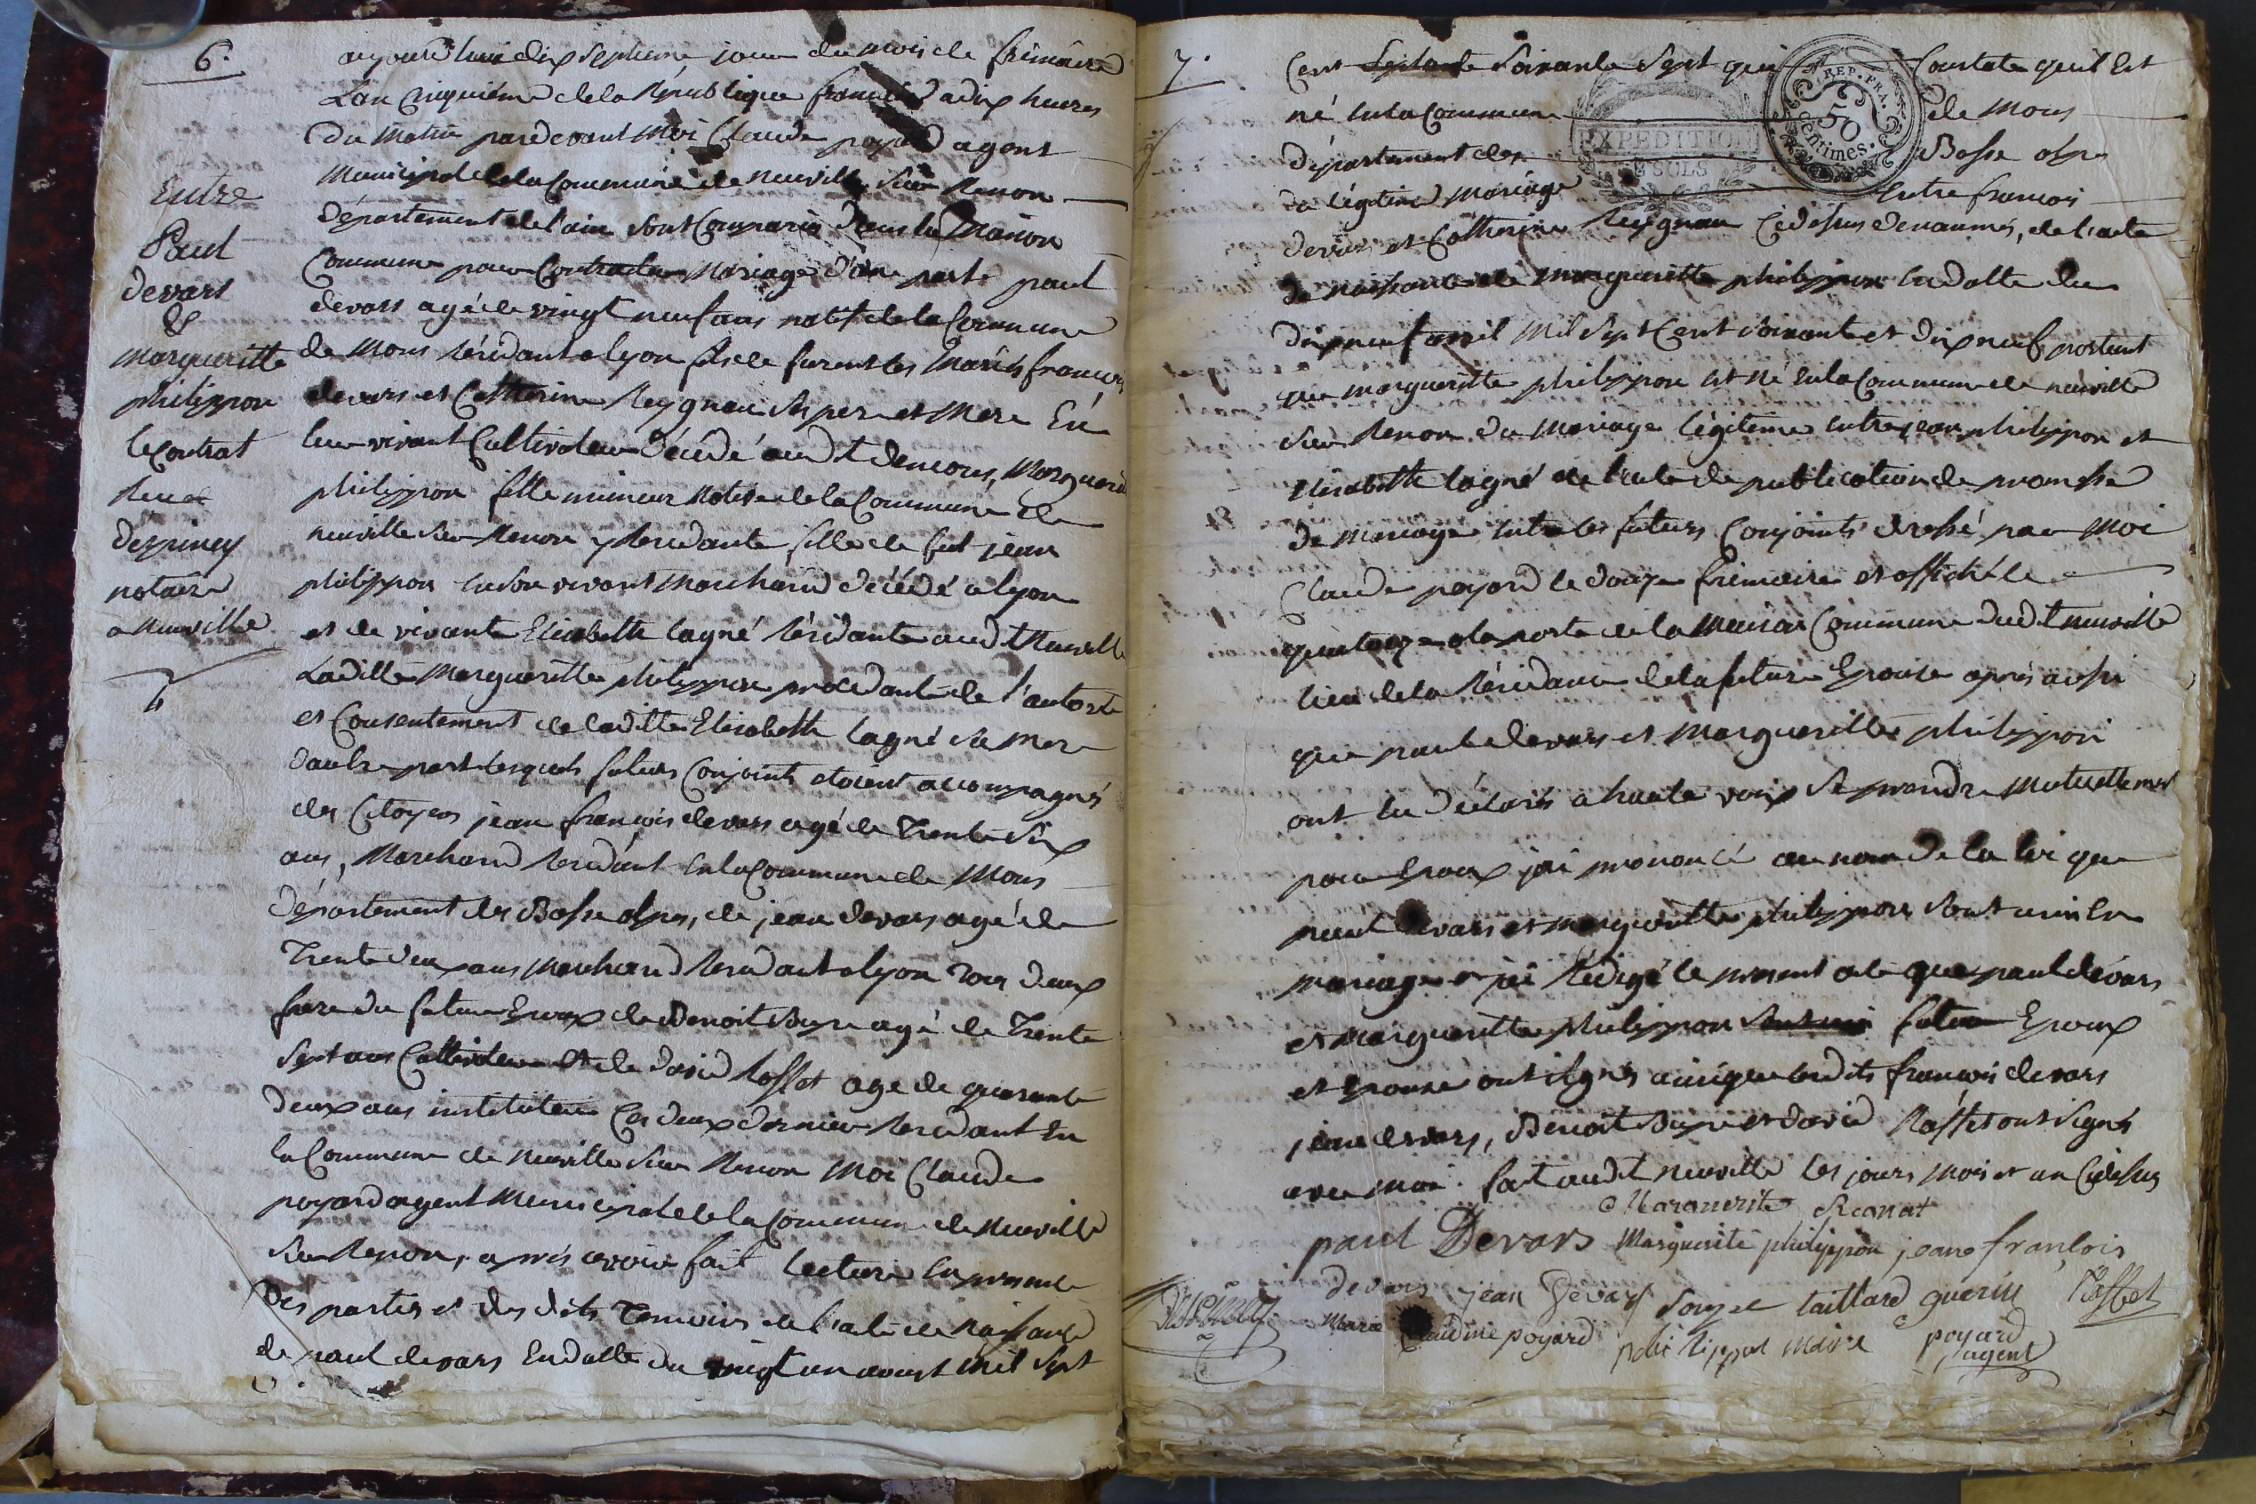 6.
aujourd'huui dix septieme jour du mois de frimaire
L'an Cinquième de la République francaise a dix heures
du Matin pardevant Moi Claude poyard agent
Municipal de la Commune de neuville sur Renon
département de l'ain sont Comparus dans la Maison
Commune pour Contracter Mariage d'une part paul
devars agé de vingt neuf ans natif de la Commune
de Mons résidant a lyon fils de furent les Mariés francois
devars et Catherine Reygnau ses pere et Mere En
leur vivant Cultivateur décédé audit de mons, Marguerite
philippon fille mineur Native de la Commune de
neuville sur Renon y résidante fille de fut jean
philippon en son vivant Marchand décédé a lyon
et de vivante Elisabeth lagné résidante audt Neuville
Laditte Margueritte philippon procedante de l'autorité
et Consentement de laditte Elisabeth lagné sa Mere
d'autre part lesquels futurs Conjoints etoient accompagnés
des Citoyens jean françois devars agé de Trente six
ans, Marchand résidant en la Commune de Mons
département des Basse alpes, de jean devars agé de
Trente deux ans Marchand résidant a lyon tous deux
frere du futur Epoux de Benoit agé de Trente
Sept ans Cultivateur et de david Rosset age de quarante
deux ans instituteur Ces deux dernier résidant En
la Commune de neuville sur Renon Moi Claude
poyard agent Municipal de la Commune de Neuville
sur Renon, après avoir fait lecture En presence
Des parties et des dits Temoins de l'acte de naissance
de paul devars En datte du vingt un aoust mil sept
Entre
Paul
devars
&
Marguerite
philippon
le Contrat
Recu
d'epiney
notaire
a Neuville
7.
Cent Septante Soixante Sept qui Constate qu'il Est
né En la Commune de Mons
département des Basse alpes
du légitime Mariage Entre francois
devars et Catherine Reygnau Cydessus denommés, de l'acte
de naissance de marguerite philippon En datte du
dix neuf avril Mil Sept Cent Soixante et dix neuf portant
que margueritte philippon est né En la Commune de neuville
sur Renon du Mariage légitime Entre jean philippon et
Elisabeth lagné de l'acte de publication de promesse
de Mariage entre les futurs Conjoints dressé par Moi
Claude poyard le douze frimaire et affiché le
quatorze a la porte de la Maison Commune dudit neuville
lieu de la résidance de la future Epouse après aussi
que paul devars et Marguerite philippon
ont eu Déclarés a haute voix Se prendre Mutuellement
pour Epoux j'ai prononcé au nom de la loi que
paul devars et marguerite philippon Sont unis En
mariage et j'ai rédigé le present acte que paul devars
et Marguerite philippon Sont uni futur Epoux
et Epouse ont signés ainsi que lesdits francois devars
jean devars, Benoit et david Rosset ont Signés
avec moi. fait audit neuville les jours mois et an Cydessus
Marguerite
paul Devars Marguerite philippon jean françois
devars jean Devars taillard guerin Rosset
Marie Claudine poyard Maire poyard
agent
EXPEDITION
SOLS
REP. FRA.
50
centimes.